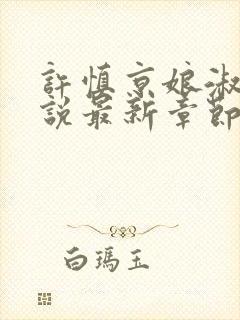 許慎京娘淑
說最新章節
白瑪玉